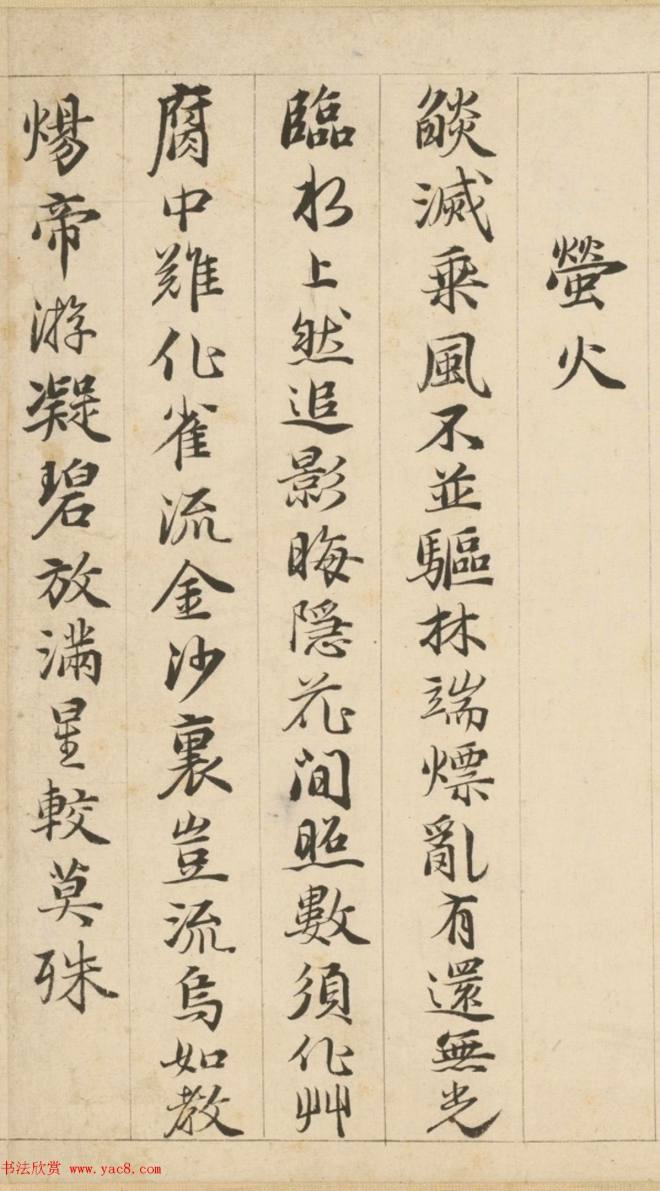 螢火
燄滅乗風不並驅林端熛亂有還無光
臨水上然追影晦隱花間照數須化艸
腐中難化雀流金沙裏豈流烏如教
煬帝游凝碧放滿星較莫殊
书法欣赏 www.yac8.com